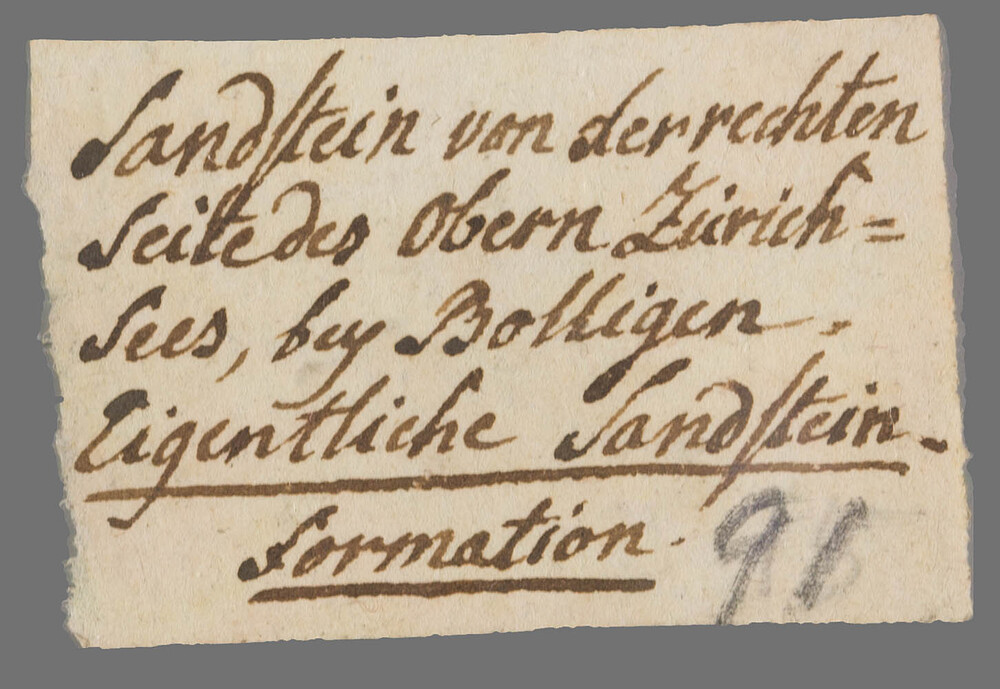 Sandstein von der rechten
Seite des Obern Zürich=
Sees, bey Bolligen.
Eigentliche Sandstein-
formation.